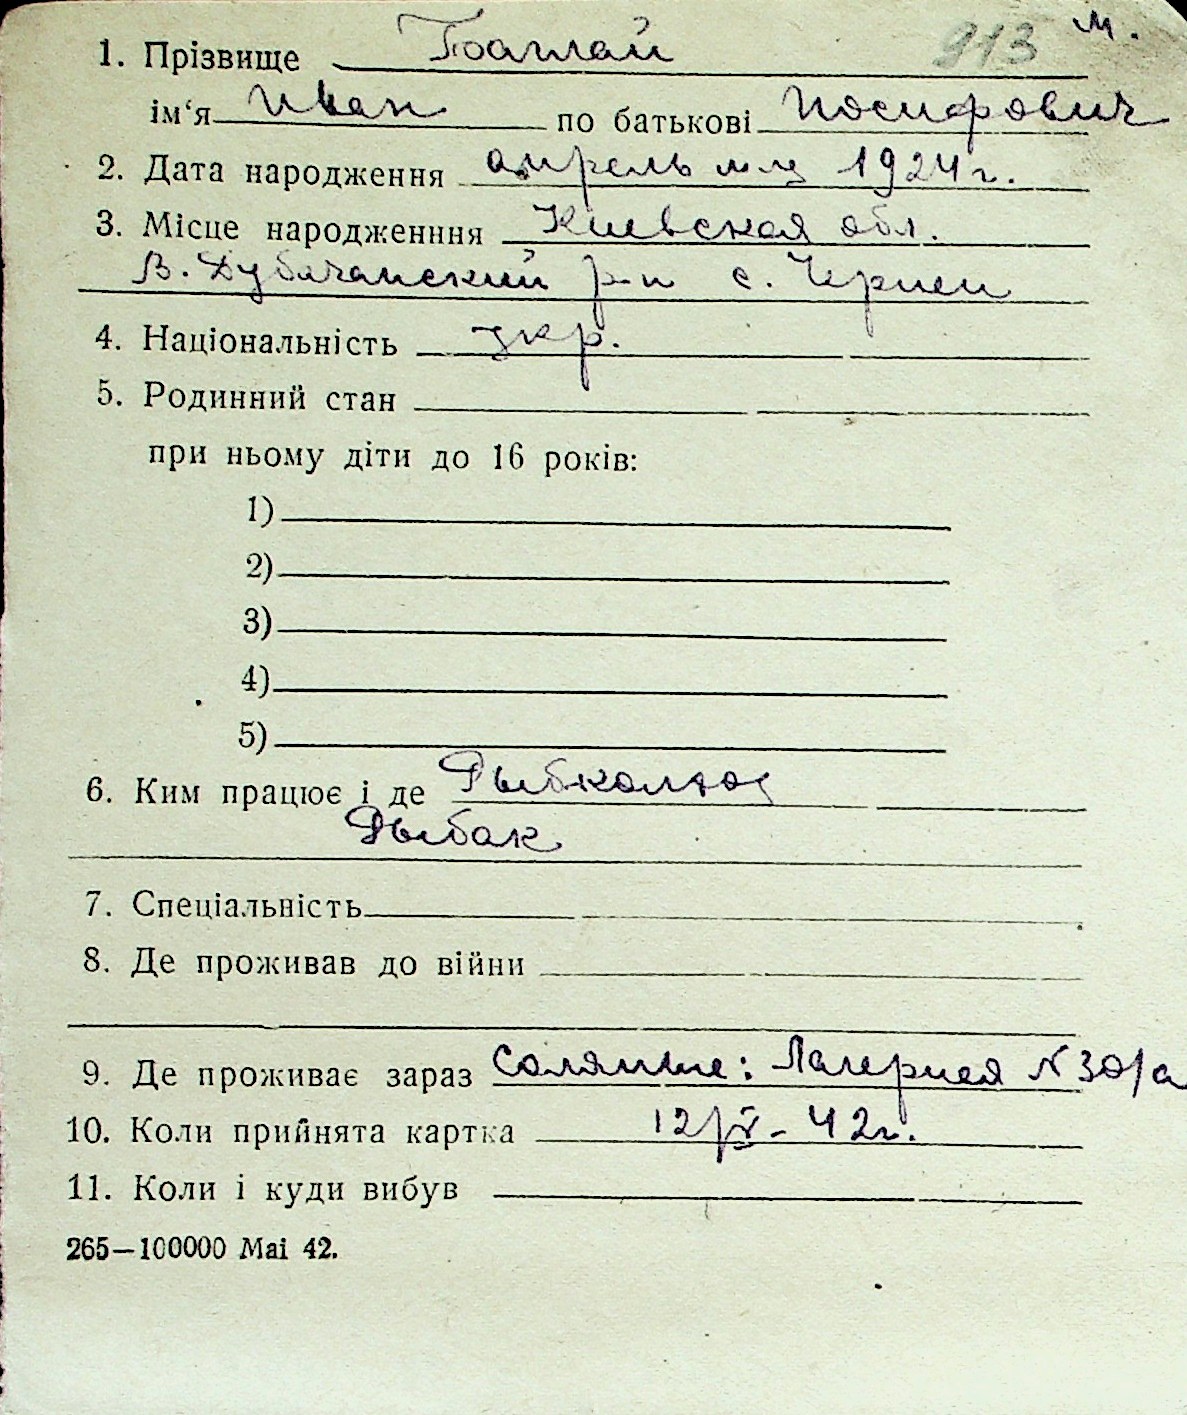 913 м.
1. Прізвище Баглай
ім‘я Иван по батькові Иосифович
2. Дата народження апрель м-ц 1924 г.
3. Місце народженння Киевская обл.
В. Дубечанский р-н с. Чернеи
4. Національність укр.
5. Родинний стан
при ньому діти до 16 років:
1)
2)
3)
4)
5)
6. Ким працює і де Рыбколхоз
Рыбак
7. Спеціальність
8. Де проживав до війни
9. Де проживає зараз Лагерная N 30/а
10. Коли прийнята картка 12/V - 42 г.
11. Коли і куди вибув
265—100000 Mai 42.